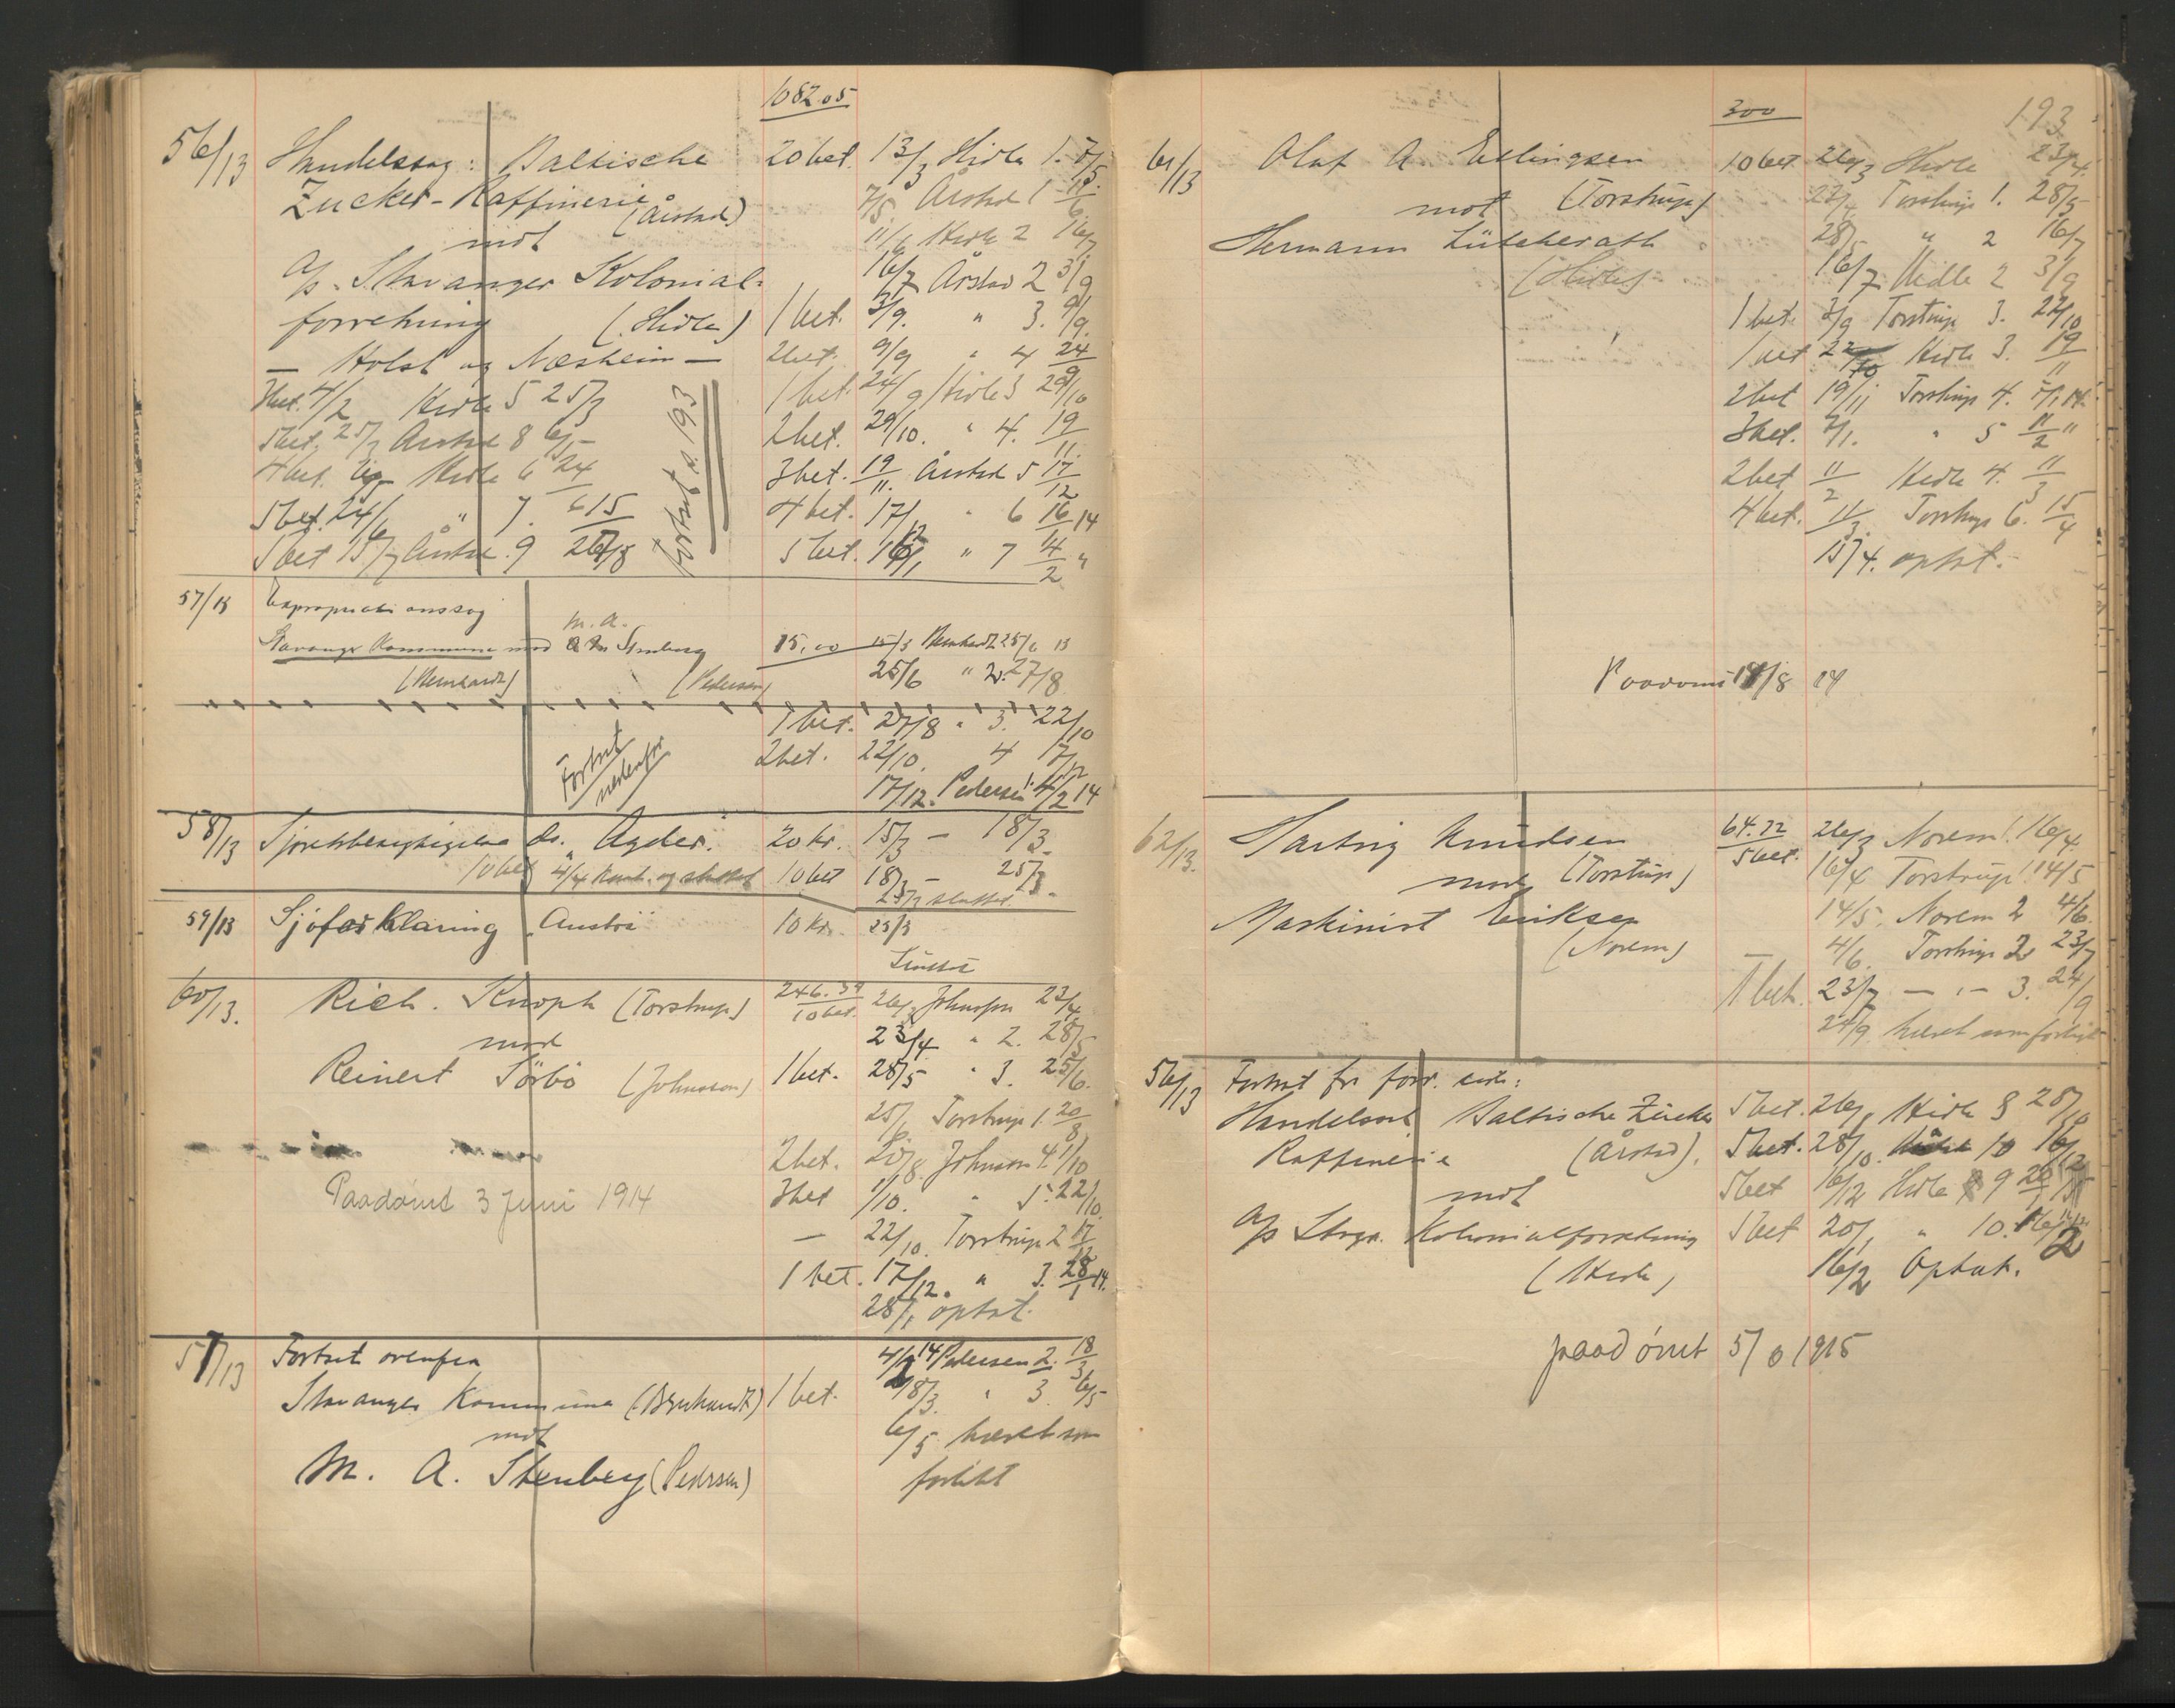 1082.05
56/13 Handelssag: Baltische 20 bet. 13/3 Hidle 1. 7/5.
Zucker-Raffinerie (Årstad) 7/5. Årstad 1 11/6
mot 11/6 Hidle 2 16/7
A/s. Stavanger Kolonial- 16/7 Årstad 2 3/9
forretning (Hidle) 1 bet. 3/9. " 3. 9/9.
— Holst og Næsheim — 2 bet. 9/9 " 4 24/9
3 bet. 4/2 Hidle 5 25/3 1 bet. 24/9 Hidle 3 29/10
5 bet. 25/3 Årstad 8 6/5 2 bet. 29/10. " 4. 19/11.
4 bet. 6/5 Hidle 6 24/6 3 bet. 19/11. Årstad 5 17/12
5 bet. 24/6 " 7. 15/7 4 bet. 17/12 " 6 16/1 14
5 bet 15/7 Årstad. 9 26/8 5 bet. 16/1 " 7 4/2 "
Fortsat s. 193
57/13 Expropriationssag
m. A.
Stavanger Kommune mod Stenberg 15,00 15/3 Bernhardt 25/6 13
(Bernhardt) (Pedersen) 25/6 " 2. 27/8
1 bet. 27/8 " 3. 22/10
2 bet. 22/10. 4 17/12
Fortsat nedenfor
17/12. Pedersen 1. 4/2 14
58/13 Ds. "Agder". 20 kr. 15/3 — 18/3.
10 bet 10 bet 18/3 — 25/3
59/13 Sjøforklaring "Austrå" 10 kr. 25/3
Sluttet
60/13. Rich. Knoph (Torstrup) 246.39 10 bet. 26/3 Johnsen 23/4
mod 23/4 " 2. 28/5
Reinert Sørbø (Johnsen) 1 bet. 28/5 " 3. 25/6.
25/6 Torstrup 1. 20/8
2 bet. 20/8. Johnsen 4. 1/10
Paadømt 3 Juni 1914 3 bet 1/10. " 5. 22/10.
— 22/10. Torstrup 2 17/12
1 bet. 17/12. " 3. 28/1 14.
28/1 optat.
57/13 Fortsat ovenfra 4/2 14 Pedersen 2. 18/3
Stavanger Kommune (Bernhardt) 1 bet. 18/3. " 3 6/5
mot 6/5 hævet som
M. A. Stenberg (Pedersen) forlikt
193
300
61/13 Olaf A. Ellingsen 10 bet 26/3 Hidle 23/4.
mot (Torstrup) 23/4 Torstrup 1. 28/5
Hermann Lütcherath 28/5 " 2 16/7
(Hidle) 16/7 Hidle 2 3/9
1 bet. 3/9 Torstrup 3. 22/10
1 bet 22/10 Hidle 3. 19/11
2 bet 19/11 Torstrup 4. 7/1 14.
3 bet. 7/1. " 5 11/2 "
2 bet 11/2 Hidle 4. 11/3
4 bet. 11/3. Torstrup 6. 15/4
15/4. optat.
Paadømt 18/8 14
62/13. Hartvig Knudsen 64.72 5 bet. 26/3 Norem 1. 16/4.
mod (Torstrup) 16/4 Torstrup 1. 14/5
Maskinist Eriksen 14/5. Norem 2 4/6.
(Norem) — 4/6. Torstrup 2 23/7
1 bet. 23/7 — " — 3. 24/9
24/9 hævet som forlikt
56/13 Fortsat fra forr. side:
Handelssak Baltische Zucker 5 bet. 26/8 Hidle 8 28/10
Raffinerie (Årstad). 5 bet. 28/10. 10 16/12
mot 5 bet 16/12 Hidle 9 20/1 15
A/s Stvgr. Kolonialforretning 5 bet 20/1 " 10. 16/2
(Hidle) 16/2 Optat.
paadømt 5/8 1915